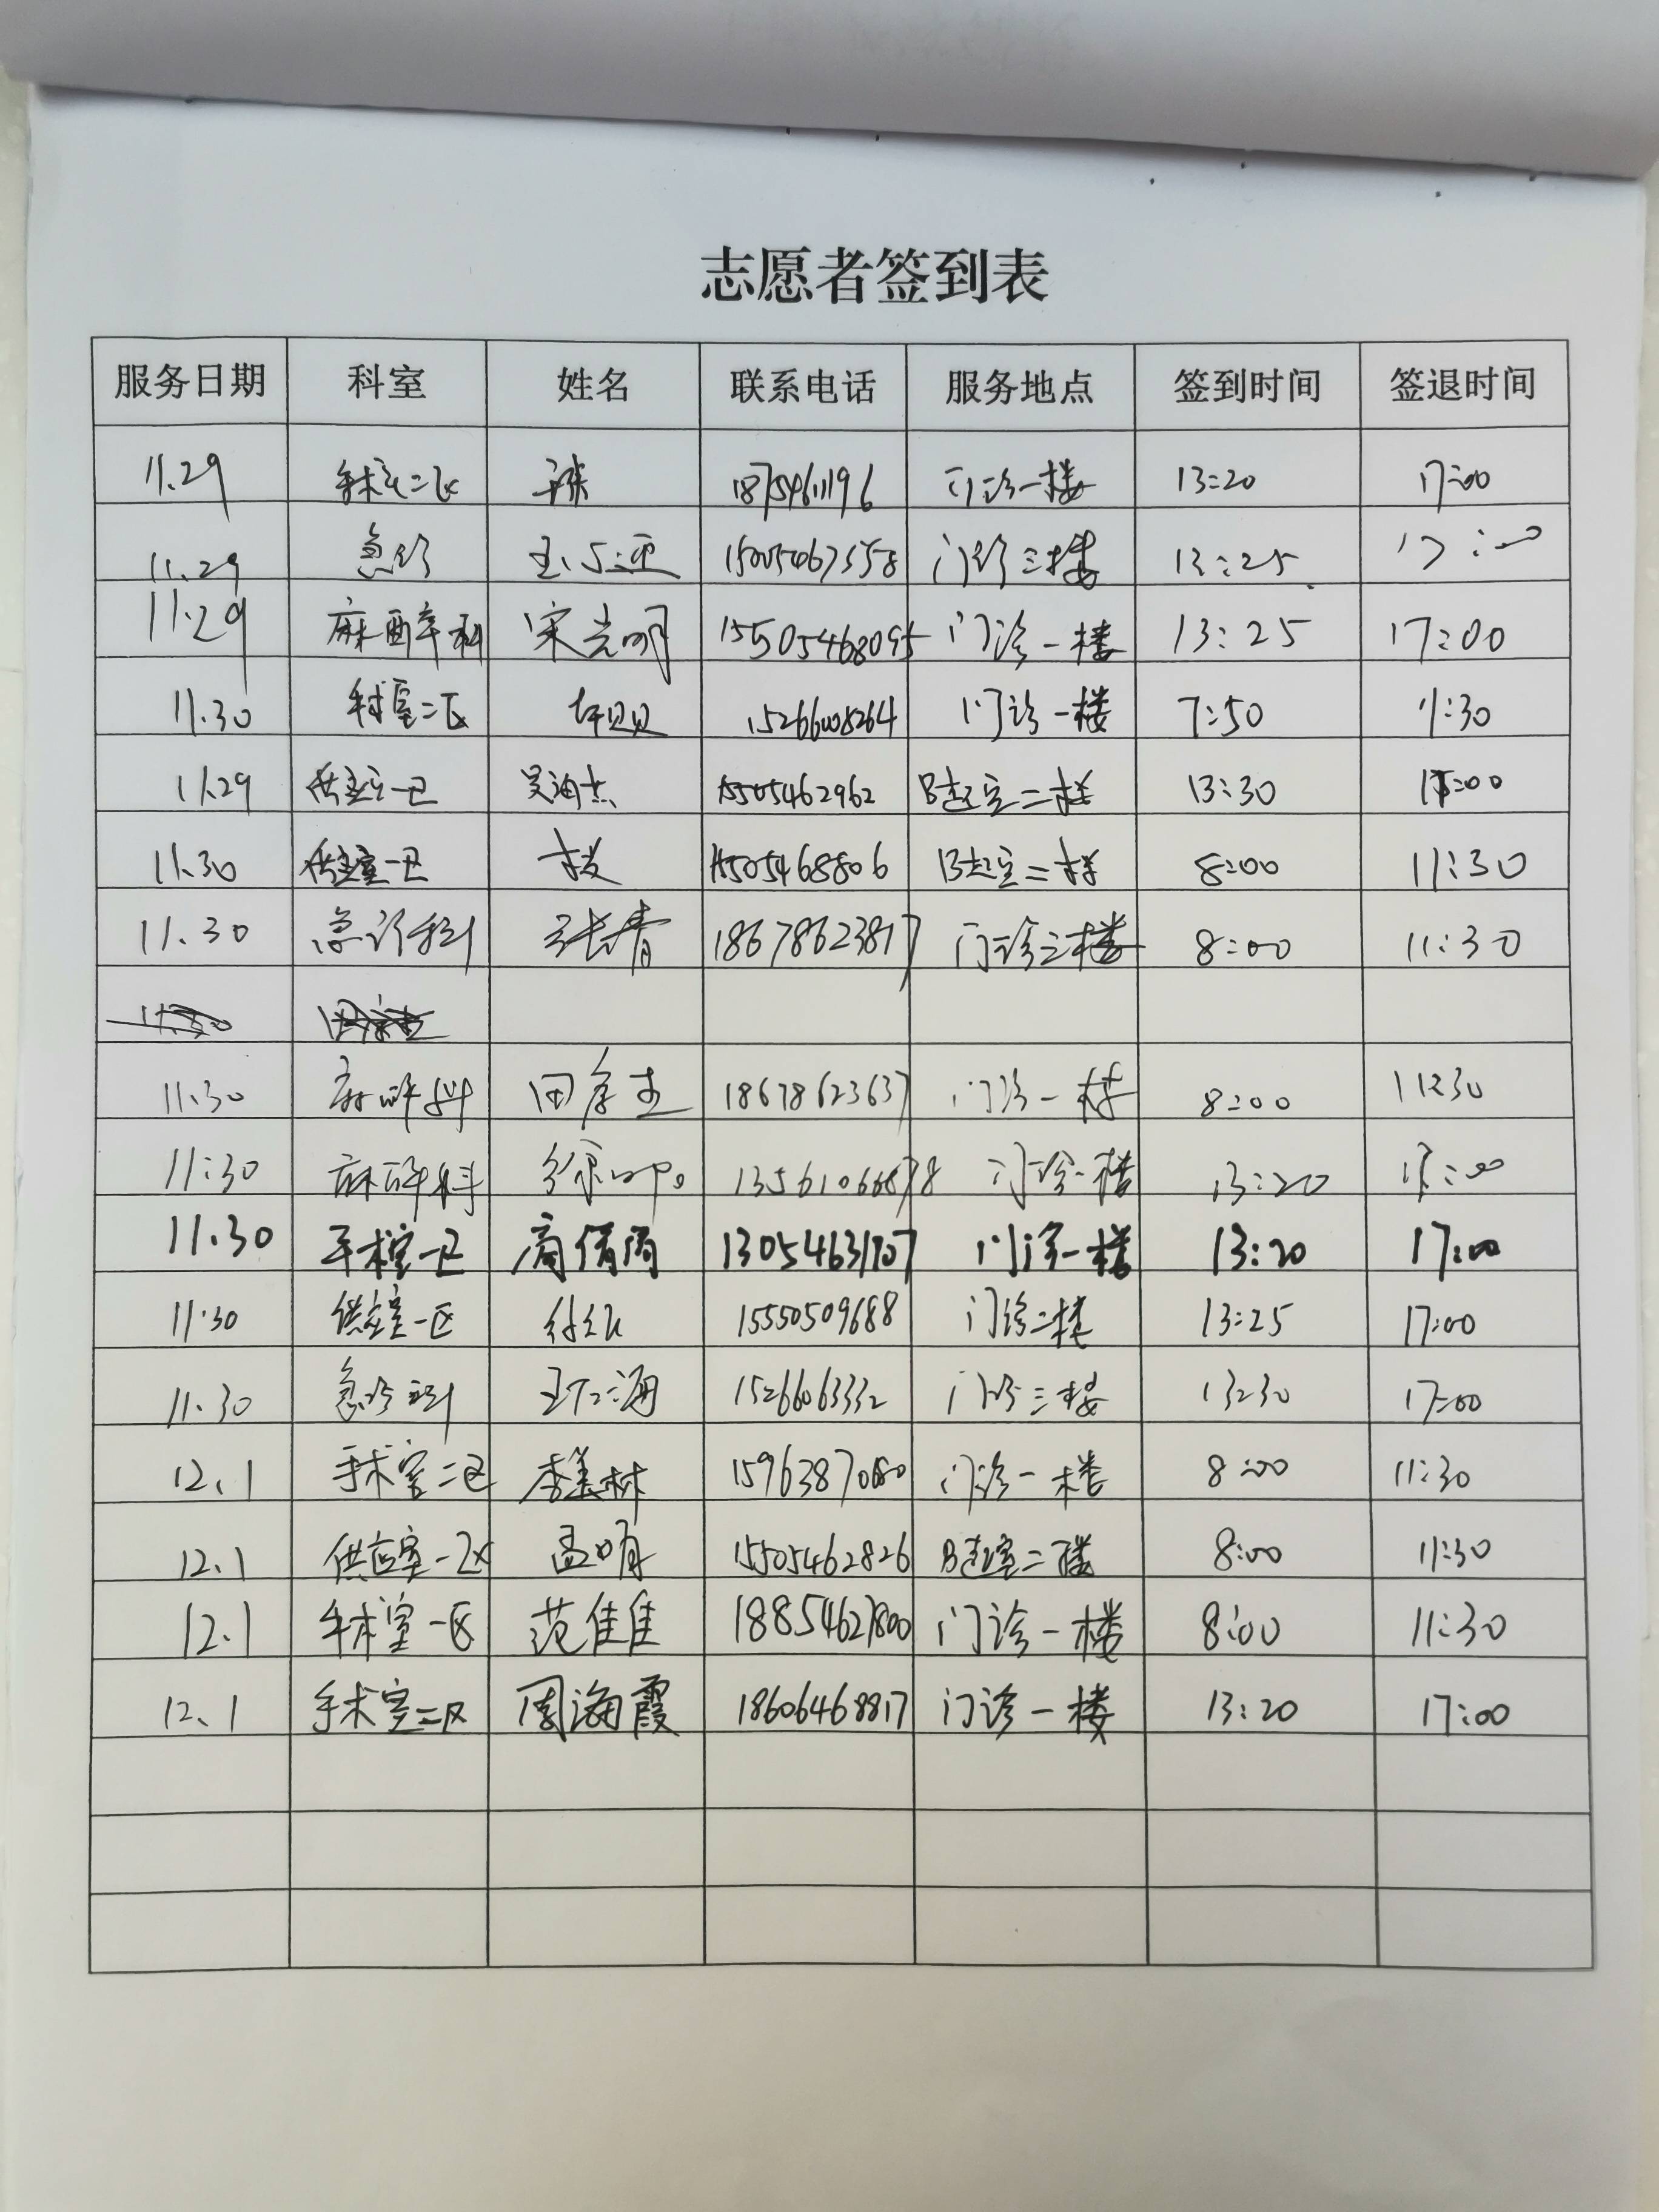 志愿者签到表
服务日期 科室 姓名 联系电话 服务地点 签到时间 签退时间
11.29 手术室二区 18754611196 门诊一楼 13:20 17:00
11.29 急诊 门诊三楼 13:25 17:00
11.29 麻醉科 宋光明 15505468095 门诊一楼 13:25 17:00
11.30 手术室二区 门诊一楼 7:50 11:30
11.29 供应室一区 15505462962 二楼 13:30 17:00
11.30 供应室一区 15505468806 二楼 8:00 11:30
11.30 急诊科 张青 18678623817 门诊三楼 8:00 11:30
11.30 麻醉科 18678623637 门诊一楼 8:00 11:30
11:30 麻醉科 门诊一楼 13:20 17:00
11.30 手术室一区 商倩倩 13054631707 门诊一楼 13:20 17:00
11.30 供应室一区 15550509688 门诊二楼 13:25 17:00
11.30 急诊科 王仁海 15266063332 门诊三楼 13:30 17:00
12.1 手术室二区 李美林 门诊一楼 8:00 11:30
12.1 供应室一区 孟明 15505462826 二楼 8:00 11:30
12.1 手术室一区 范佳佳 18854627800 门诊一楼 8:00 11:30
12.1 手术室二区 周海霞 18606468817 门诊一楼 13:20 17:00